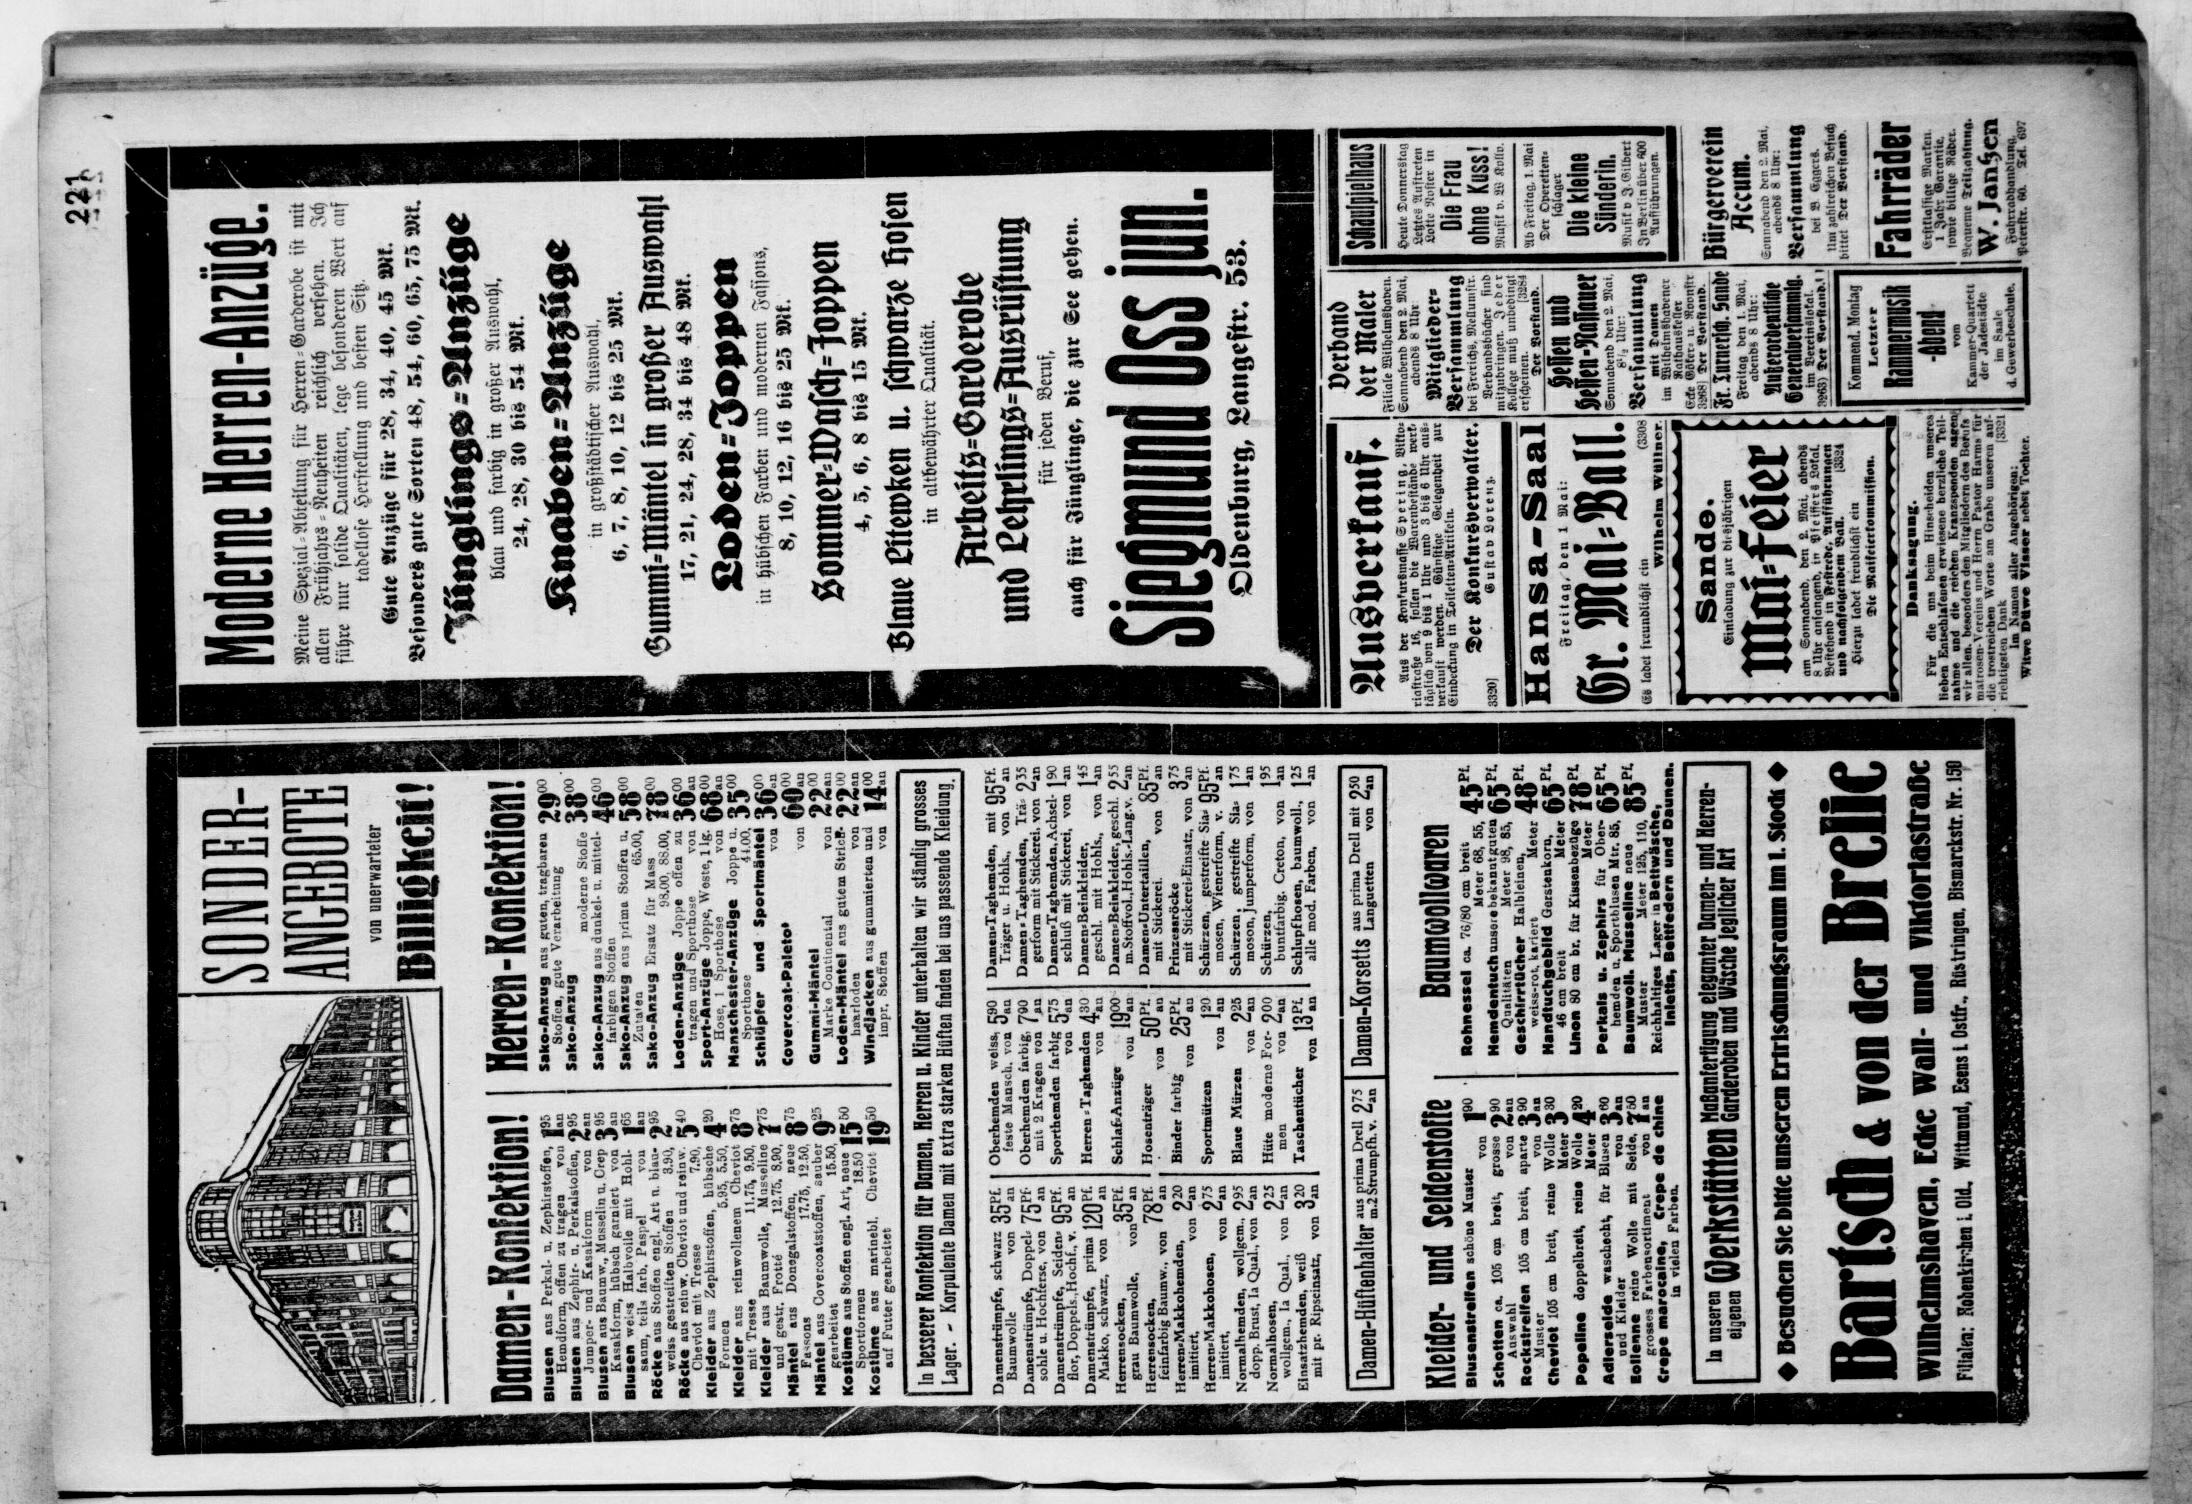 221
SONDER-
ANGEBOTE
von unerwarteter
Billigkeit!
Damen-Konfektion!
Blusen aus Perkal- u. Zephirstoffen,
Hemdform, offen zu tragen von 1.95 an
Blusen aus Zephir- u. Perkalstoffen,
Jumper- und Kasakform von 2.95 an
Blusen aus Baumw., Musselin u. Crep
Kasakform, hübsch garniert von 3.95 an
Blusen weiss Halbvoile mit Hohl-
saum, teils farb. Paspel von 1.65 an
Röcke aus Stoffen engl. Art u. blau-
weiss gestreiften Stoffen 3.90, 2.95
Röcke aus reinw. Cheviot und reinw.
Cheviot mit Tresse 7.90, 5.40
Kleider aus Zephirstoffen, hübsche
Formen 5.95, 5.50, 4.20
Kleider aus reinwollenem Cheviot
mit Tresse 11.75, 9.50, 8.75
Kleider aus Baumwolle, Musseline
und gestr. Frotté 12.75, 8.90, 7.75
Mäntel aus Donegalstoffen, neue
Fassons 17.75, 12.50, 8.75
Mäntel aus Covercoatstoffen, sauber
gearbeitet 15.50, 9.25
Kostüme aus Stoffen engl. Art, neue
Sportformen 18.50 15.50
Kostüme aus marinebl. Cheviot
auf Futter gearbeitet 19.50
Herren-Konfektion!
Sako-Anzug aus guten, tragbaren
Stoffen, gute Verarbeitung 29.00
Sako-Anzug moderne Stoffe 38.00
Sako-Anzug aus dunkel- u. mittel-
farbigen Stoffen 46.00
Sako-Anzug aus prima Stoffen u.
Zutaten 65.00, 58.00
Sako-Anzug Ersatz für Mass
98.00, 88.00, 78.00
Loden-Anzüge Joppe offen zu
tragen und Sporthose von 36.00 an
Sport-Anzüge Joppe, Weste, 1 lg.
Hose, 1 Sporthose von 68.00 an
Manschester-Anzüge Joppe u.
Sporthose 44.00, 35.00
Schlüpfer und Sportmäntel
von 36.00 an
Covercoat-Paletot von 60.00 an
Gummi-Mäntel
Marke Continental von 22.00 an
Loden-Mäntel aus gutem Strich-
haarloden von 22.00 an
Windjacken aus gummierten und
impr. Stoffen von 14.00 an
In besserer Konfektion für Damen, Herren u. Kinder unterhalten wir ständig grosses
Lager. - Korpulente Damen mit extra starken Hüften finden bei uns passende Kleidung.
Damenstrümpfe, schwarz
Baumwolle von 35 Pf. an
Damenstrümpfe, Doppel-
sohle u. Hochferse, von 75 Pf. an
Damenstrümpfe, Seiden-
flor, Doppels., Hochf., v. 95 Pf. an
Damenstrümpfe, prima
Makko, schwarz, von 120 Pf. an
Herrensocken,
grau Baumwolle, von 35 Pf. an
Herrensocken,
feinfarbig Baumw., von 78 Pf. an
Herren-Makkohemden,
imitiert, von 2.20 an
Herren-Makkohosen,
imitiert, von 2.75 an
Normalhemden, wollgem.,
dopp. Brust, Ia Qual., von 2.95 an
Normalhosen,
wollgem., Ia Qual., von 2.25 an
Einsatzhemden, weiß
mit pr. Ripseinsatz, von 3.20 an
Oberhemden weiss,
feste Mansch. von 5.90 an
Oberhemden farbig,
mit 2 Kragen von 7.90 an
Sporthemden farbig
von 5.75 an
Herren-Taghemden
von 4.30 an
Schlaf-Anzüge
von 19.00 an
Hosenträger
von 50 Pf. an
Binder farbig
von 25 Pf. an
Sportmützen
von 1.20 an
Blaue Mürzen
von 2.25 an
Hüte moderne For-
men von 2.00 an
Taschentücher
von 13 Pf. an
Damen-Taghemden, mit
Träger u. Hohls., von 95 Pf. an
Damen-Taghemden, Trä-
gerform mit Stickerei, von 2.35 an
Damen-Taghemden, Achsel-
schluß mit Stickerei, von 1.90 an
Damen-Beinkleider,
geschl. mit Hohls., von 1.45 an
Damen-Beinkleider, geschl.
m. Stoffvol., Hohls.-Lang. v. 2.55 an
Damen-Untertaillen,
mit Stickerei. von 85 Pf. an
Prinzessröcke
mit Stickerei-Einsatz, von 3.75 an
Schürzen, gestreifte Sia-
mosen, Wienerform, v. 95 Pf. an
Schürzen, gestreifte Sia-
moson, Jumperform, von 1.75 an
Schürzen,
buntfarbig. Creton, von 1.95 an
Schlupfhosen, baumwoll.,
alle mod. Farben, von 1.25 an
Damen-Hüftenhalter aus prima Drell
m. 2 Strumpfh. v. 2.75 an
Damen-Korsetts aus prima Drell mit
Languetten von 2.50 an
Kleider- und Seidenstoffe
Blusenstreifen schöne Muster von 1.90
Schotten ca. 105 cm breit, grosse
Auswahl von 2.90 an
Rockstreifen 105 cm breit, aparte
Muster von 3.90 an
Cheviot 105 cm breit, reine Wolle
Meter 3.30
Popeline doppelbreit, reine Wolle
Meter 4.20
Adlerseide waschecht, für Blusen
und Kleider von 3.60 an
Eolienne reine Wolle mit Seide,
grosses Farbensortiment von 7.50 an
Crepe marocaine, Crepe de chine
in vielen Farben.
Baumwollwaren
Rohnessel ca. 76/80 cm breit
Meter 68, 55, 45 Pf.
Hemdentuch unsere bekannt guten
Qualitäten Meter 98, 85, 65 Pf.
Geschirrtücher Halbleinen,
weiss-rot, kariert Meter 48 Pf.
Handtuchgebild Gerstenkorn,
46 cm breit Meter 65 Pf.
Linon 80 cm br. für Kissenbezüge
Meter 78 Pf.
Perkals u. Zephirs für Ober-
hemden u. Sportblusen Mtr. 85, 65 Pf.
Baumwoll. Musseline neue
Muster Meter 125, 110, 85 Pf.
Reichhaltiges Lager in Bettwäsche,
Inletts, Bettfedern und Daunen.
In unseren eigenen Werkstätten Maßanfertigung eleganter Damen- und Herren-
Garderoben und Wäsche jeglicher Art
◆ Besuchen Sie bitte unseren Erfrischungsraum im I. Stock ◆
Bartsch & von der Brelie
Wilhelmshaven, Ecke Wall- und Viktoriastraße
Filialen: Rodenkirchen i. Old., Wittmund, Esens i. Ostfr., Rüstringen, Bismarckstr. Nr. 150
Moderne Herren-Anzüge.
Meine Spezial-Abteilung für Herren-Garderobe ist mit
allen Frühjahrs-Neuheiten reichlich versehen. Ich
führe nur solide Qualitäten, lege besonderen Wert auf
tadellose Herstellung und besten Sitz.
Gute Anzüge für 28, 34, 40, 45 Mk.
Besonders gute Sorten 48, 54, 60, 65, 75 Mk.
Jünglings-Anzüge
blau und farbig in großer Auswahl,
24, 28, 30 bis 54 Mk.
Knaben-Anzüge
in großstädtischer Auswahl,
6, 7, 8, 10, 12 bis 25 Mk.
Gummi-Mäntel in großer Auswahl
17, 21, 24, 28, 34 bis 48 Mk.
Loden-Joppen
in hübschen Farben und modernen Fassons,
8, 10, 12, 16 bis 25 Mk.
Sommer-Wasch-Joppen
4, 5, 6, 8 bis 15 Mk.
Blaue Litewken u. schwarze Hosen
in altbewährter Qualität.
Arbeits-Garderobe
und Lehrlings-Ausrüstung
für jeden Beruf,
auch für Jünglinge, die zur See gehen.
Siegmund Oss jun.
Oldenburg, Langestr. 53.
Ausverkauf.
Aus der Konkursmasse Spering, Vikto-
riastraße 16, sollen die Warenbestände werk-
täglich von 9 bis 1 Uhr und 3 bis 6 Uhr aus-
verkauft werden. Günstige Gelegenheit zur
Eindeckung in Toiletten-Artikeln.
Der Konkursverwalter.
3320] Gustav Lorenz.
Hansa-Saal
Freitag, den 1 Mai:
Gr. Mai-Ball.
Es ladet freundlichst ein (3308
Wilhelm Wüllner.
Sande.
Einladung zur diesjährigen
Mai-Feier
am Sonnabend, den 2. Mai, abends
8 Uhr anfangend, in Pfeiffers Lokal.
Bestehend in Festrede, Aufführungen
und nachfolgendem Ball. [3324
Hierzu ladet freundlichst ein
Die Maifeierkommission.
Danksagung.
Für die uns beim Hinscheiden unseres
lieben Entschlafenen erwiesene herzliche Teil-
nahme und die reichen Kranzspenden sagen
wir allen, besonders den Mitgliedern des Berufs-
matrosen-Vereins und Herrn Pastor Harms für
die trostreichen Worte am Grabe unseren auf-
richtigsten Dank [3321
Im Namen aller Angehörigen:
Witwe Düwe Visser nebst Tochter.
Verband
der Maler
Filiale Wilhelmshaven.
Sonnabend den 2. Mai,
abends 8 Uhr
Mitglieder-
Versammlung
bei Frerichs, Mellumstr.
Verbandsbücher sind
mitzubringen. Jeder
Kollege muß unbedingt
erscheinen. [3284
Der Vorstand.
Hessen und
Hessen-Nassauer
Sonnabend den 2. Mai,
8½ Uhr:
Versammlung
mit Damen
im Wilhelmshavener
Ratshauskeller
Ecke Göker- u. Roonstr
3268] Der Vorstand.
Fr. Turnerich. Sande
Freitag den 1. Mai,
abends 8 Uhr:
Außerordentliche
Generalversammlg.
im Vereinslokal.
3263) Der Vorstand.
Kommend. Montag
Letzter
Kammermusik
-Abend
vom
Kammer-Quartett
der Jadestädte
im Saale
d. Gewerbeschule.
Schauspielhaus
Heute Donnerstag
Letztes Auftreten
Lotte Koster in
Die Frau
ohne Kuss!
Musik v. W Kollo.
Ab Freitag, 1. Mai
Der Operetten-
schlager
Die kleine
Sünderin.
Musik v J. Gilbert
In Berlin über 600
Aufführungen.
Bürgerverein
Accum.
Sonnabend den 2. Mai,
abends 8 Uhr:
bei B. Eggers.
Versammlung
Um zahlreichen Besuch
bittet Der Vorstand.
Fahrräder
Erstklassige Marken.
1 Jahr Garantie,
sowie billige Räder.
Bequeme Teilzahlung.
W. Janßen
Fahrradhandlung,
Peterstr. 60. Tel. 697